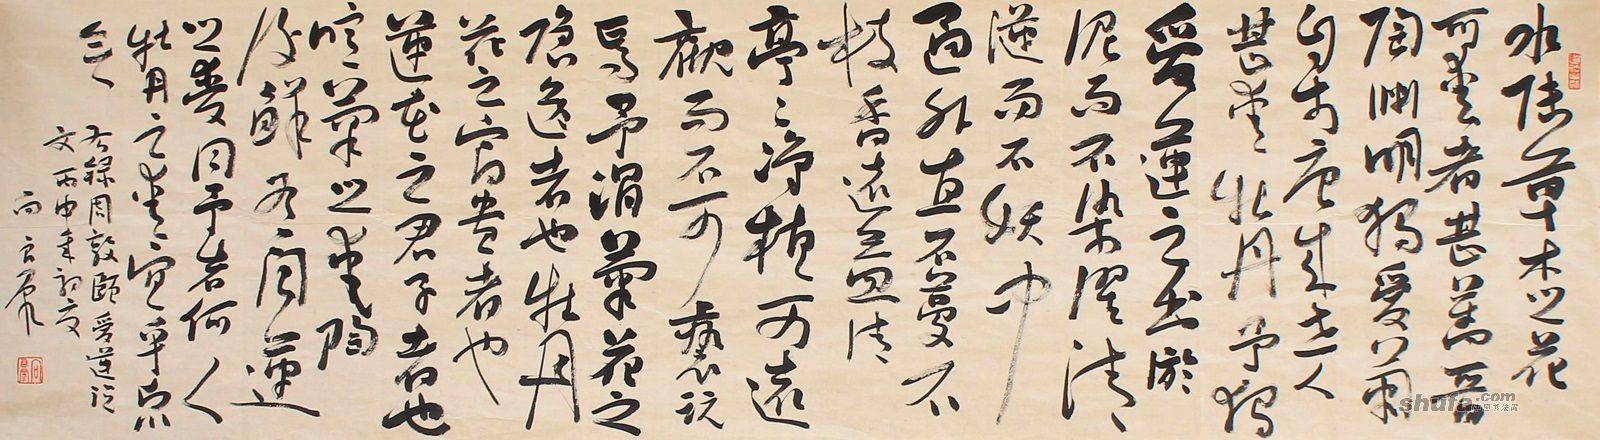 水陸草木之花
可愛者甚蕃晉
陶淵明獨愛菊
自李唐來世人
甚愛牡丹予獨
愛蓮之出於
泥而不染濯清
漣而不妖中
通外直不蔓不
枝香遠益清
亭〻淨植可遠
觀而不可褻玩
焉予謂菊花之
隱逸者也牡丹
花之富貴者也
蓮花之君子者也
噫菊之愛陶
後鮮有聞蓮
之愛同予者何人
牡丹之愛宜乎眾
矣
右錄周敦頤愛蓮說
文丙申年初夏
shufa.com